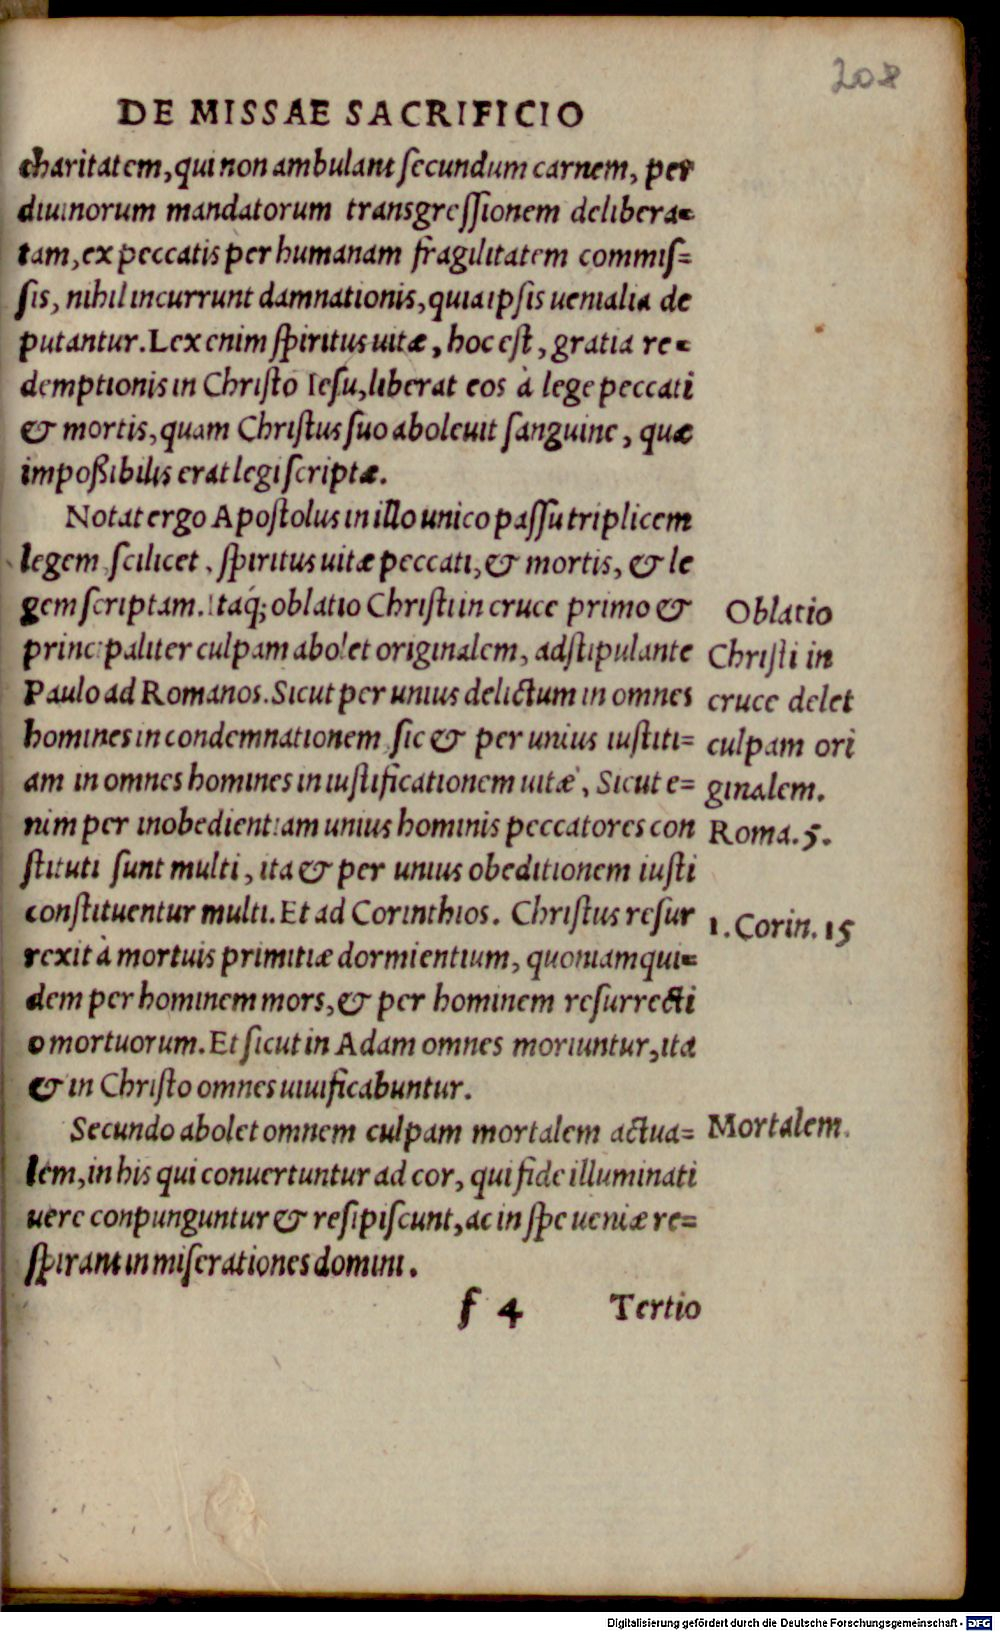 208
DE MISSAE SACRIFICIO
charitatem, qui non ambulant ſecundum carnem, per
diuinorum mandatorum transgreſſionem delibera-
tam, ex peccatis per humanam fragilitatem commiſ=
ſis, nihil incurrunt damnationis, quia ipſis uenialia de
putantur. Lex enim ſpiritus uitæ, hoc eſt, gratia re-
demptionis in Chriſto Ieſu, liberat eos à lege peccati
& mortis, quam Chriſtus ſuo aboleuit ſanguine, quæ
impoßibilis erat legi ſcriptæ.
Notat ergo Apoſtolus in illo unico paſſu triplicem
legem ſcilicet, ſpiritus uitæ peccati, & mortis, & le
gem ſcriptam. Itaq́; oblatio Chriſti in cruce primo &
principaliter culpam abolet originalem, adſtipulante
Paulo ad Romanos. Sicut per unius delictum in omnes
homines in condemnationem ſic & per unius iuſtiti=
am in omnes homines in iuſtificationem uitæ, Sicut e=
nim per inobedientiam unius hominis peccatores con
ſtituti ſunt multi, ita & per unius obeditionem iuſti
conſtituentur multi. Et ad Corinthios. Chriſtus reſur
rexit à mortuis primitiæ dormientium, quoniam qui=
dem per hominem mors, & per hominem reſurrecti
o mortuorum. Et ſicut in Adam omnes moriuntur, ita
& in Chriſto omnes uiuificabuntur.
Secundo abolet omnem culpam mortalem actua=
lem, in his qui conuertuntur ad cor, qui fide illuminati
uere conpunguntur & reſipiſcunt, ac in ſpe ueniæ re=
ſpirant in miſerationes domini.
f 4 Tertio
Oblatio
Chriſti in
cruce delet
culpam ori
ginalem.
Roma. 5.
1. Corin. 15
Mortalem.
Digitalisierung gefördert durch die Deutsche Forschungsgemeinschaft - DFG